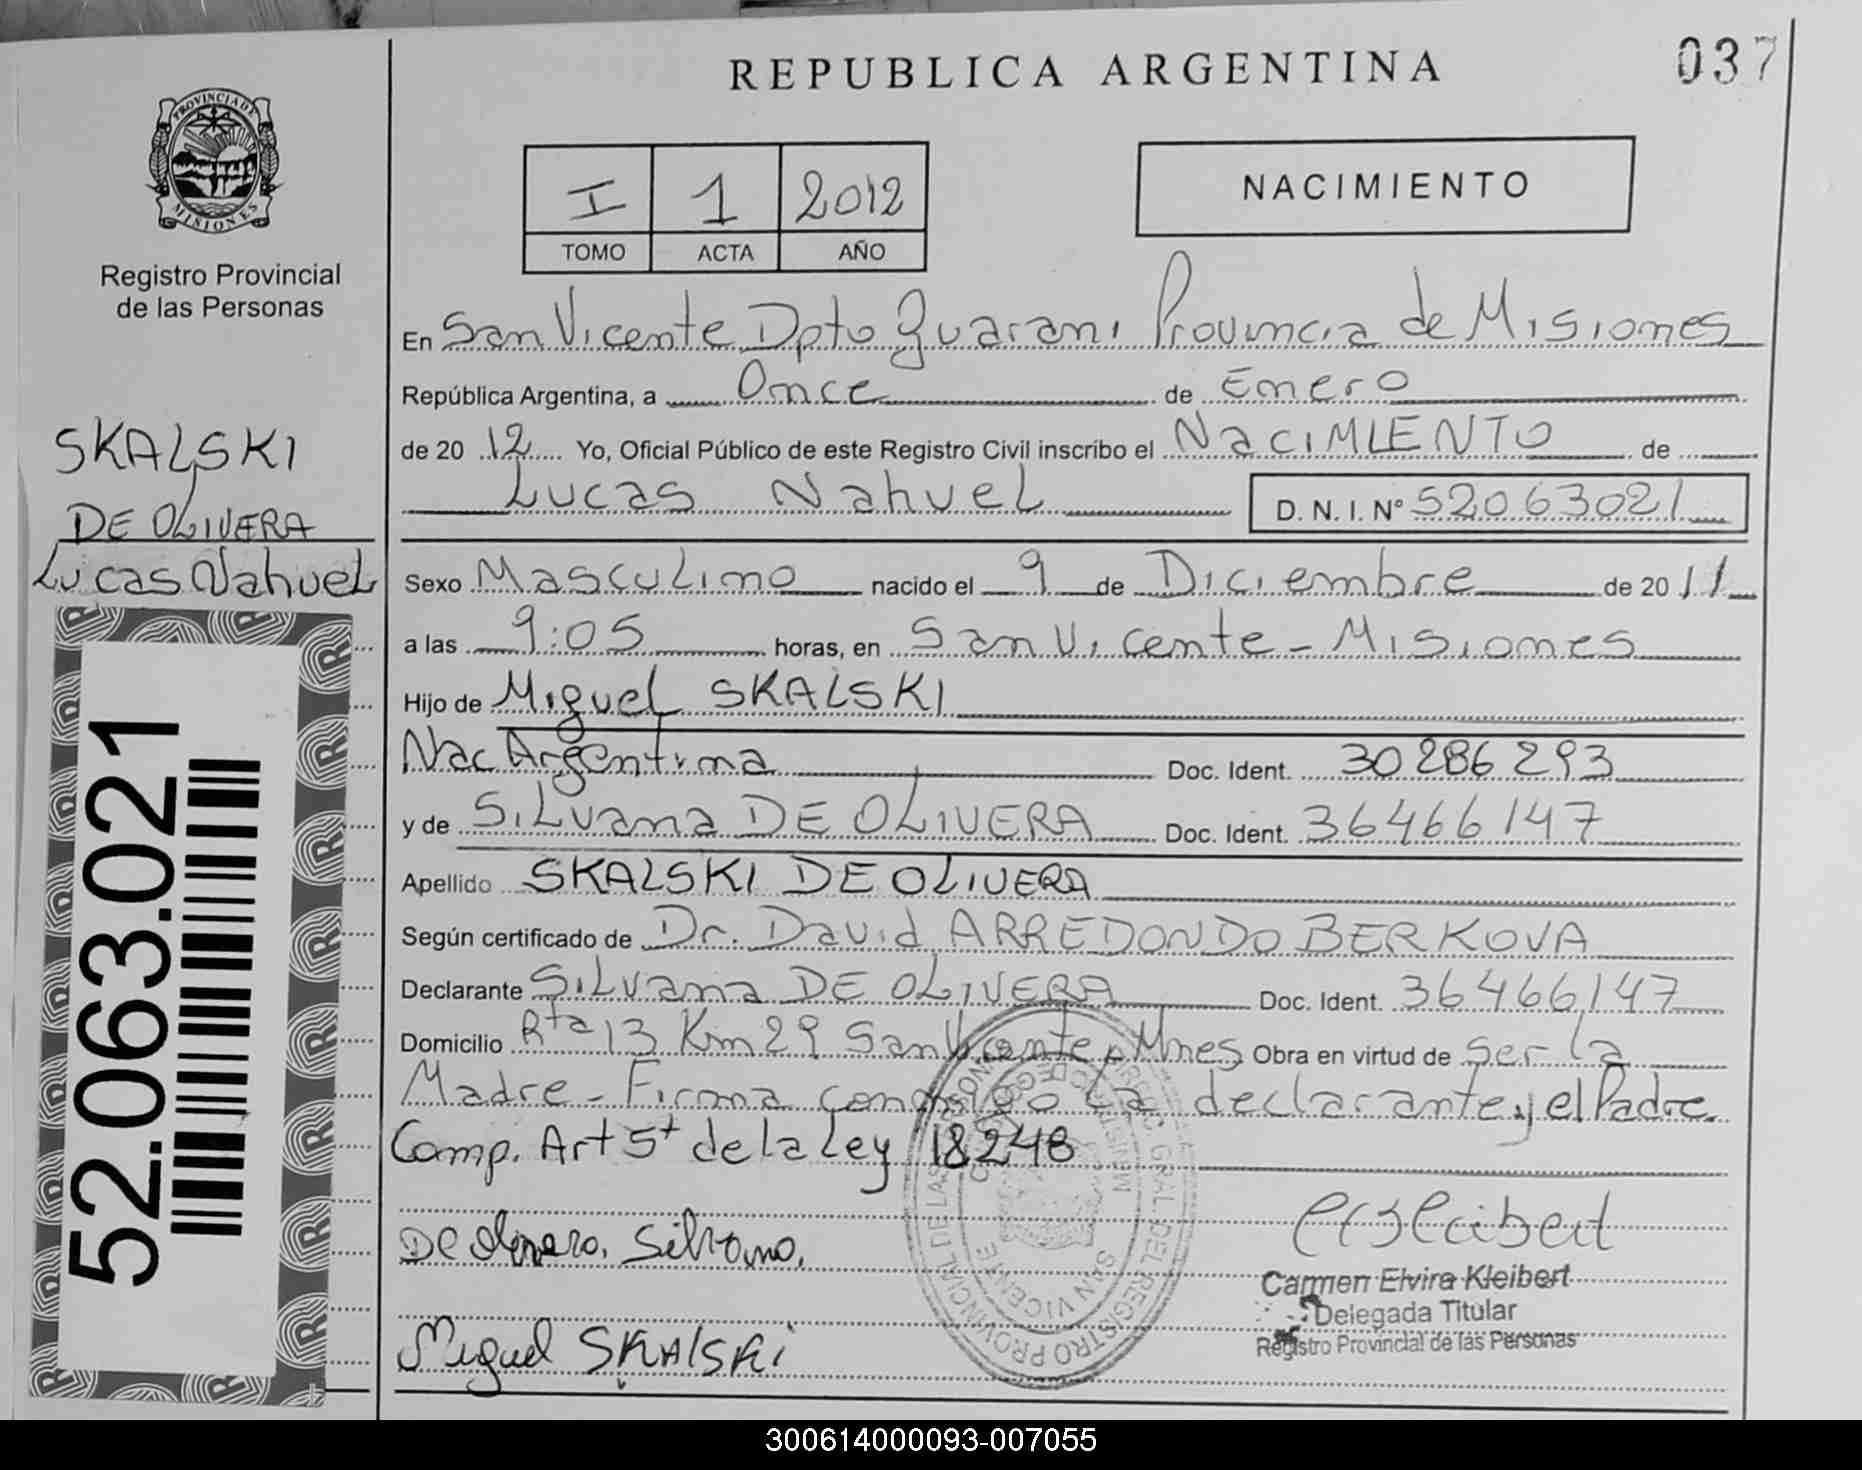 REPUBLICA ARGENTINA
037
PROVINCIA DE
MISIONES
Registro Provincial
de las Personas
I 1 2012
TOMO ACTA AÑO
NACIMIENTO
En San Vicente Dpto Guarani Provincia de Misiones
República Argentina, a Once de Enero
de 2012 Yo, Oficial Público de este Registro Civil inscribo el NaciMIENTO de
Lucas Nahuel D. N. I. Nº 52063021
SKALSKI
DE OLIVERA
Lucas Nahuel
52.063.021
Sexo Masculino nacido el 9 de Diciembre de 2011
a las 9:05 horas, en San Vicente - Misiones
Hijo de Miguel SKALSKI
Nac Argentina Doc. Ident. 30286293
y de Silvana DE OLIVERA Doc. Ident. 36466147
Apellido SKALSKI DE OLIVERA
Según certificado de Dr. David ARREDONDO BERKOVA
Declarante Silvana DE OLIVERA Doc. Ident. 36466147
Domicilio Rta 13 Km 29 San Vicente Mnes Obra en virtud de Ser la
Madre - Firma conmigo la declarante y el Padre
Comp. Art 5t de la Ley 18248
De Olivera, Silvana,
Miguel SKALSKi
Carmen Elvira Kleibert
Delegada Titular
Registro Provincial de las Personas
SAN VICENTE
300614000093-007055